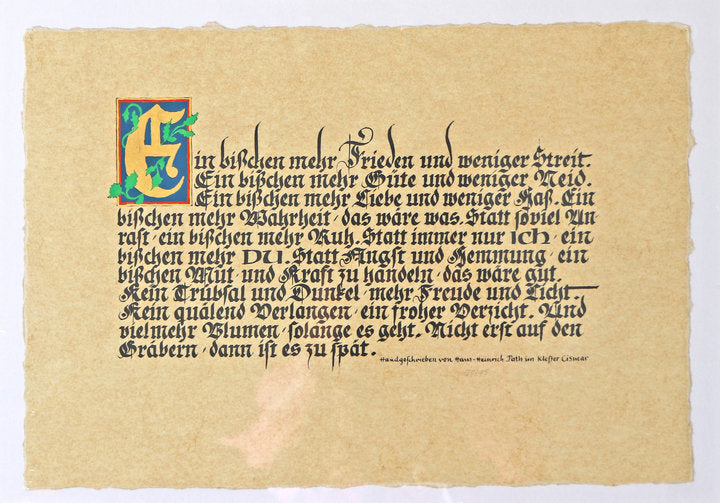 Ein bißchen mehr Frieden und weniger Streit.
Ein bißchen mehr Güte und weniger Neid.
Ein bißchen mehr Liebe und weniger Haß. Ein
bißchen mehr Wahrheit · das wäre was. Statt soviel Un
rast · ein bißchen mehr Ruh. Statt immer nur ICH · ein
bißchen mehr DU. Statt Angst und Hemmung · ein
bißchen Mut und Kraft zu handeln · das wäre gut.
Kein Trübsal und Dunkel · mehr Freude und Licht.
Kein quälend Verlangen · ein froher Verzicht. Und
viel mehr Blumen · solange es geht. Nicht erst auf den
Gräbern · dann ist es zu spät.
Handgeschrieben von Hans-Heinrich Path im Kloster Cismar